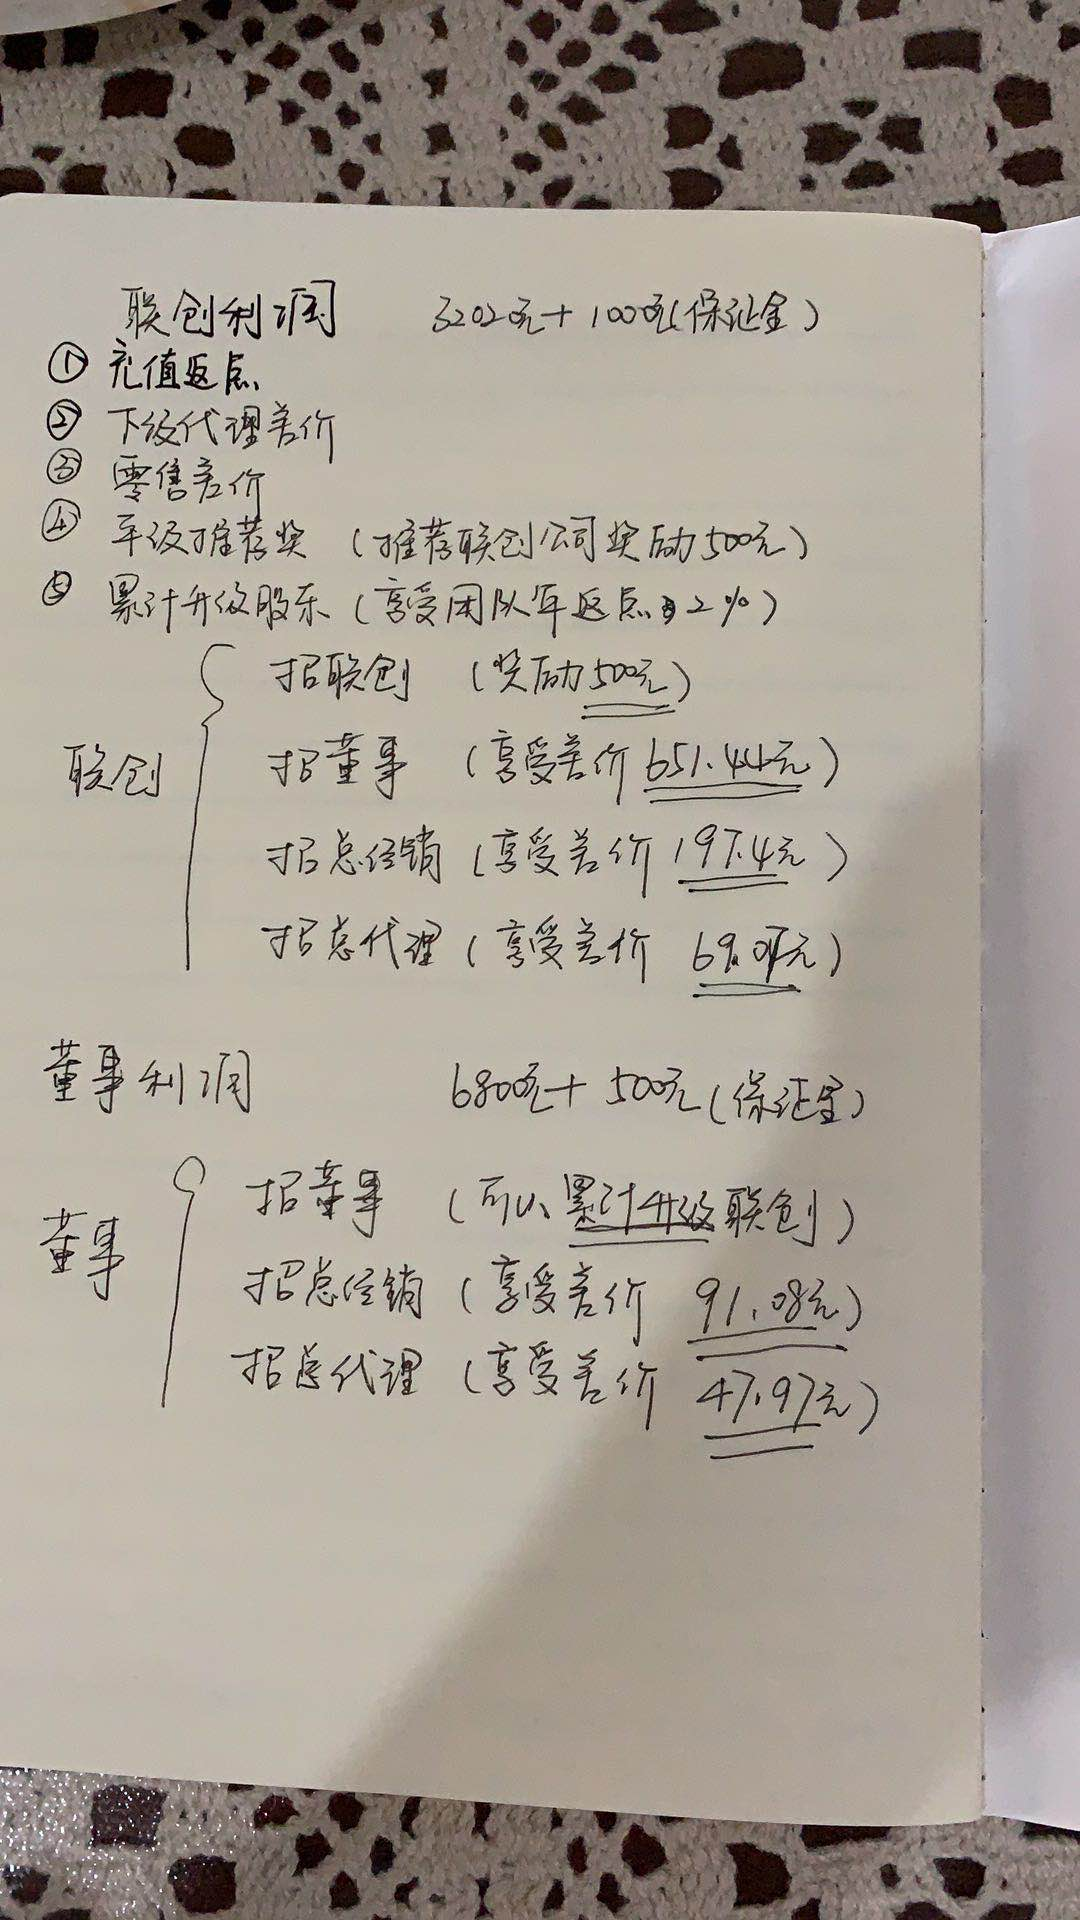 联创利润 3202元+1000元(保证金)
① 充值返点
② 下级代理差价
③ 零售差价
④ 平级推荐奖 (推荐联创公司奖励500元)
⑤ 累计升级股东 (享受团队年返点2%)
招联创 (奖励500元)
联创 招董事 (享受差价651.44元)
招总经销 (享受差价197.4元)
招总代理 (享受差价 元)
董事利润 6800元+500元(保证金)
招董事 (可以累计升级联创)
董事
招总经销 (享受差价 91.08元)
招总代理 (享受差价 47.97元)